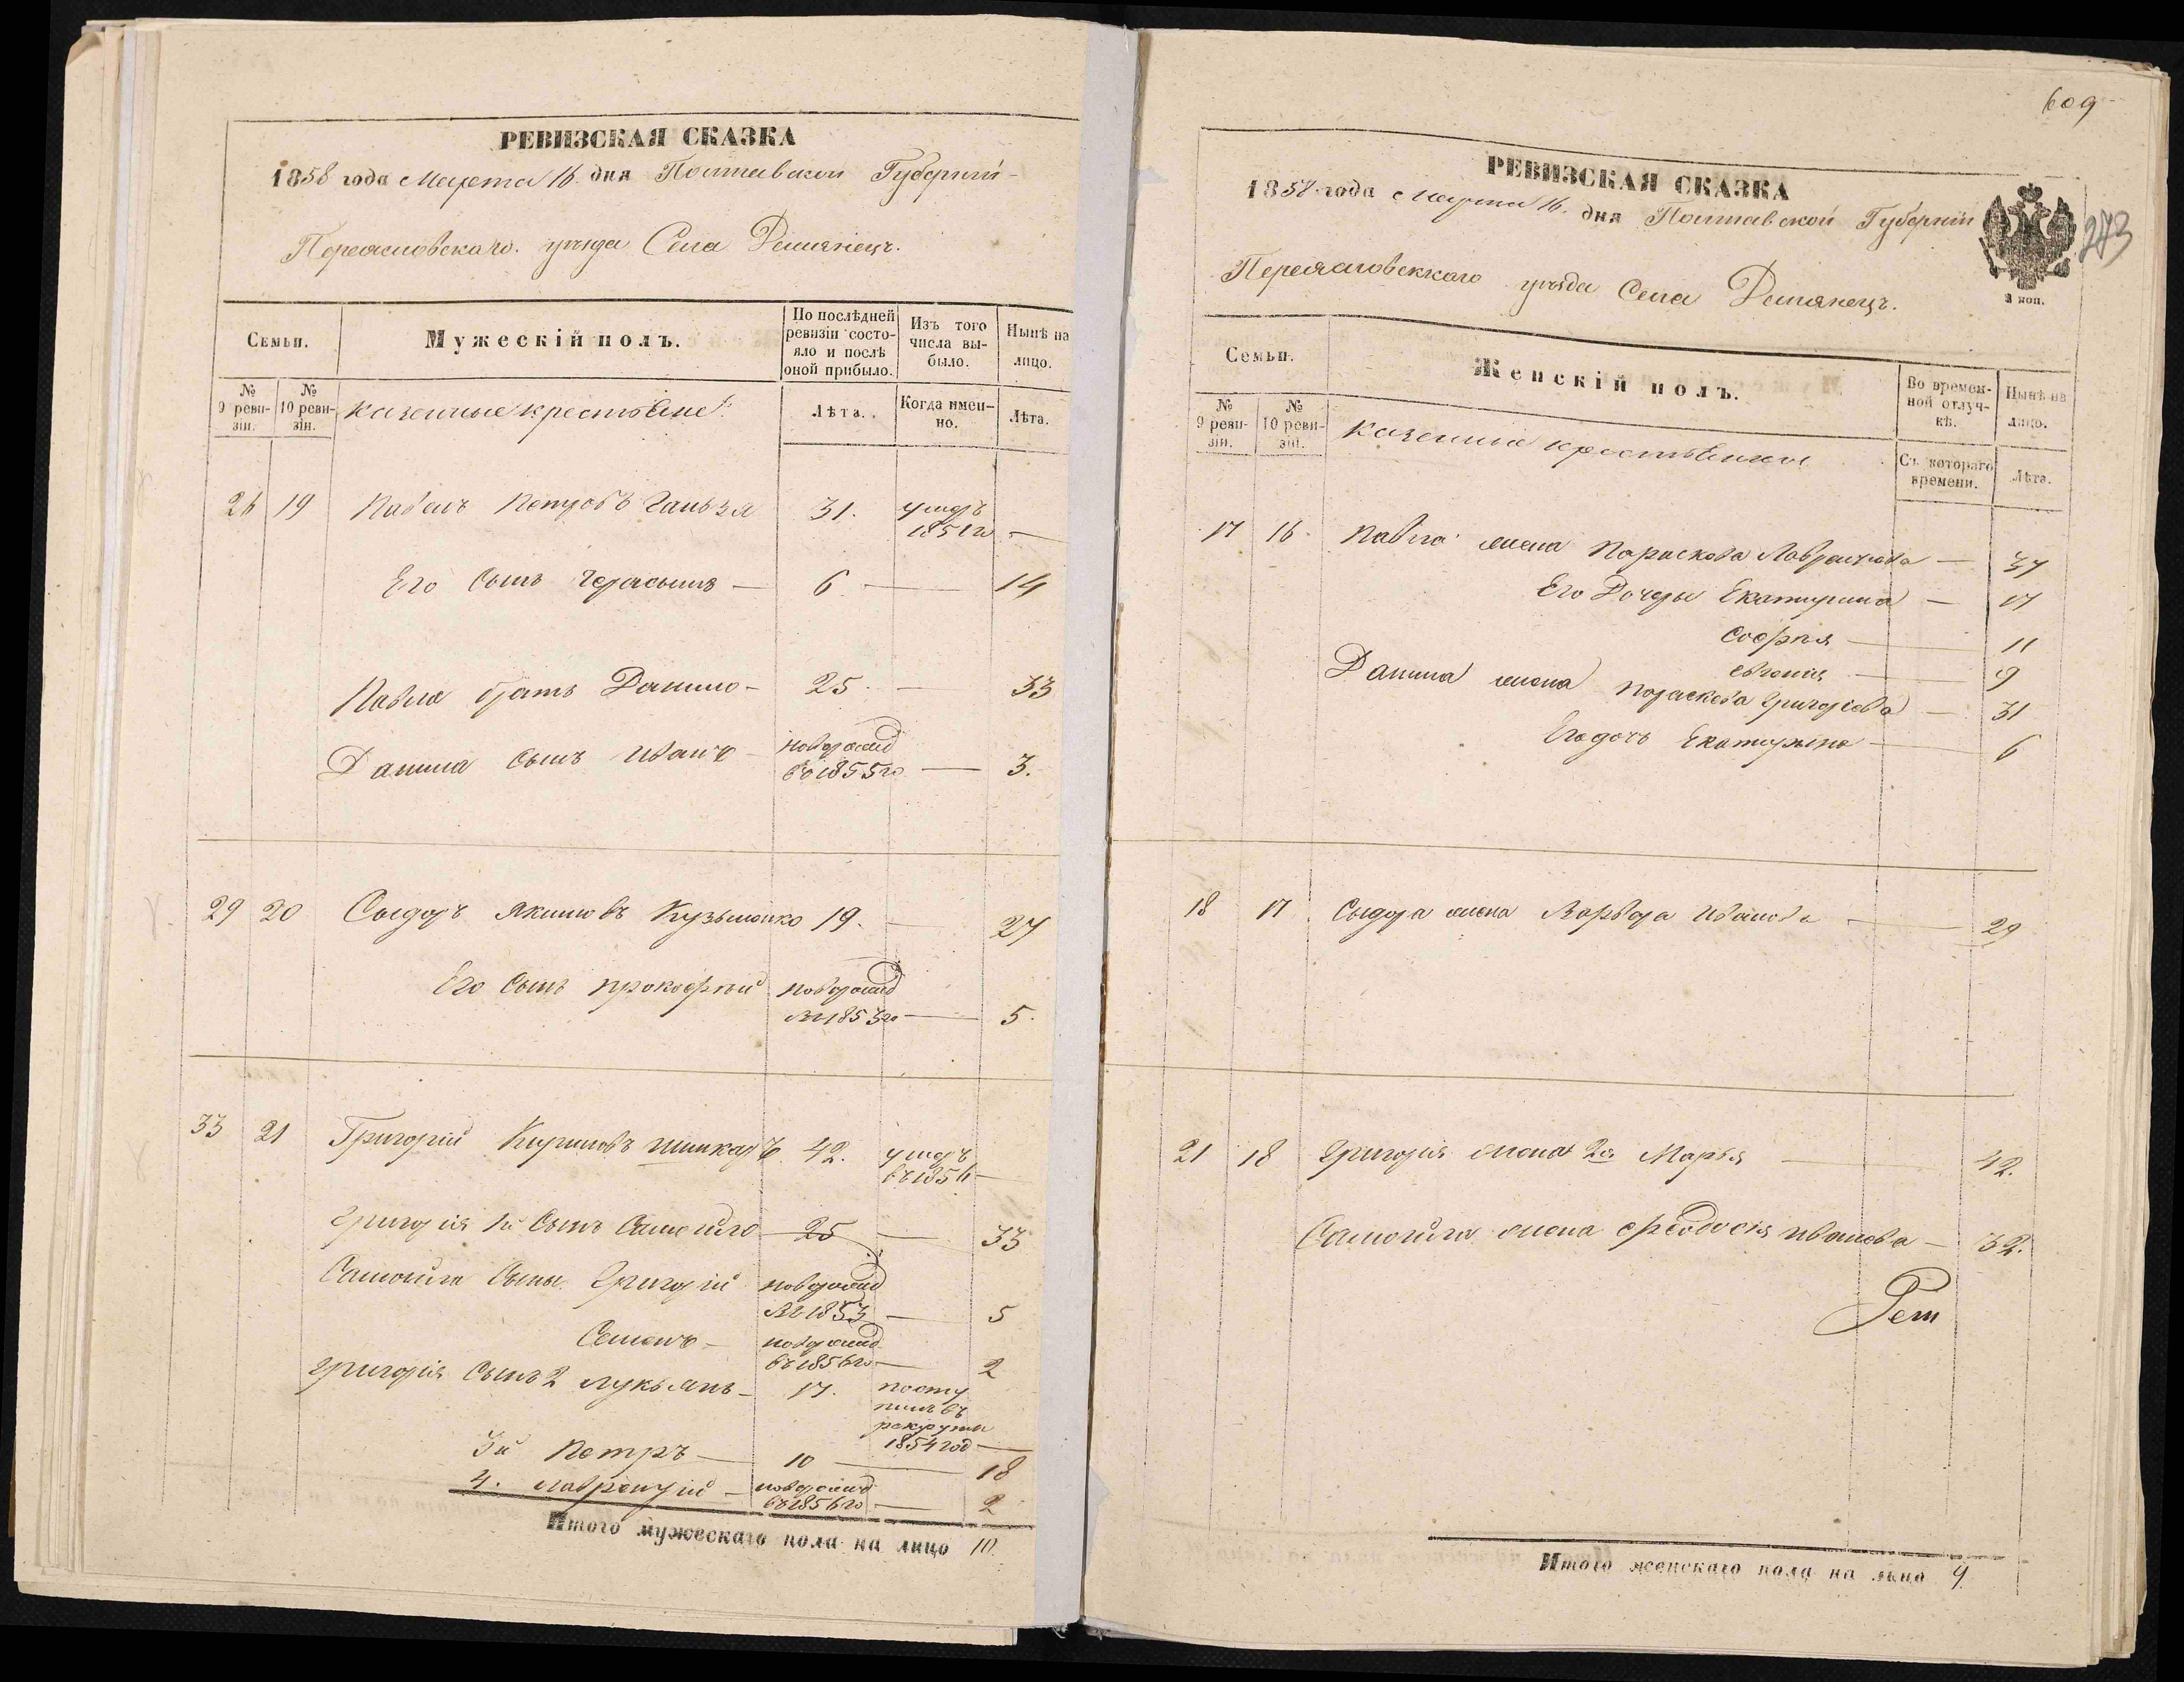 РЕВИЗСКАЯ СКАЗКА
1858 года Марта 16 дня Полтавской Губерніи
Переясловскаго уѣзда Села Демянецъ.
Семьи.
Мужескій полъ.
По послѣдней ревизіи состояло и послѣ оной прибыло.
Изъ того числа выбыло.
Нынѣ на лицо.
№ 9 ревизіи.
№ 10 ревизіи.
казенные крестьяне
Лѣта.
Когда именно.
Лѣта.
26 19 Павелъ Петровъ Ганьзя 31. умеръ 1851го —
Его Сынъ Герасимъ — 6. — 14
Павла братъ Данило — 25. — 33
Данила Сынъ Иванъ — новорожд въ 1855го — 3.
29 20 Сыдоръ Якимовъ Кузьменко 19. — 27
Его Сынъ прокофѣй новорожд въ 1853го — 5.
33 21 Григорій Кириловъ шинкарь 42. умеръ въ 1856 —
Григорія 1й Сынъ Самойло 25 — 33
Самойла Сыны Григорій новорожд въ 1853 — 5
Семенъ — новорожд въ 1856го — 2
Григорія Сынъ 2 лукьянъ — 17. посту
пилъ въ
рекруты
1854 год —
3й Петръ — 10 — 18
4. лаврентій — новорожд въ 1856го — 2
Итого мужескаго пола на лицо 10.
609
РЕВИЗСКАЯ СКАЗКА
1858 года Марта 16. дня Полтавской Губерніи
273
Переясловскаго уѣзда Села Демянецъ.
3 коп.
Семьи.
Женскій полъ.
Во временной отлучкѣ.
Нынѣ на лицо.
№ 9 ревизіи.
№ 10 ревизіи.
Съ котораго времени.
Лѣта.
17 16. Павла жена Параскова — 37
Его Дочеры Екатирина — 17
София — 11
— 9
Данила жена параскева Григоріева — 31
Его дочъ Екатирына — 6
18 17 Сыдора жена Варвара Иванова — 29
21 18 Григорія жена 2я Марья — 42.
Самойла жена Феодосія иванова — 32.
Итого женскаго пола на лицо 9